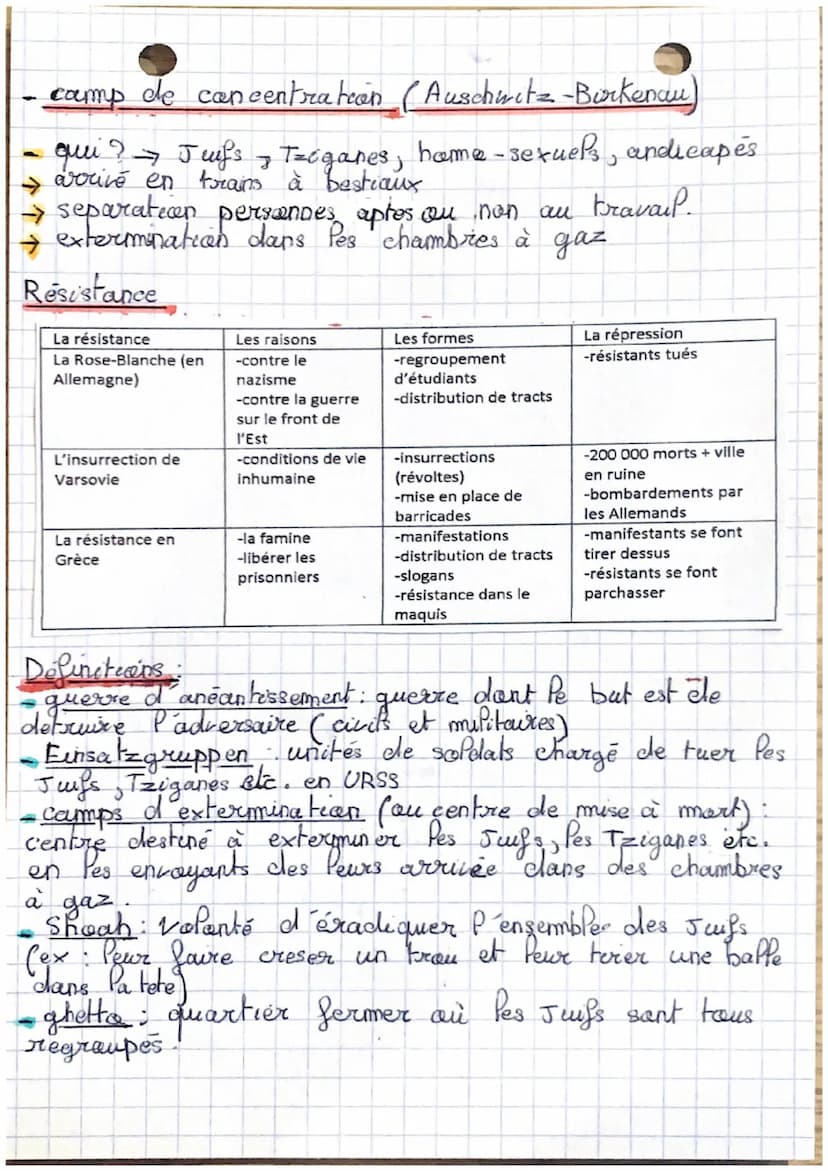 - camp de concentration (Auschwitz-Birkenau)
- qui ? → Juifs, Tziganes, homo-sexuels, andicapés
→ arrivé en trains à bestiaux
→ separation personnes aptes ou non au travail.
→ extermination dans les chambres à gaz
Résistance
La résistance | Les raisons | Les formes | La répression
La Rose-Blanche (en Allemagne) | -contre le nazisme -contre la guerre sur le front de l'Est | -regroupement d'étudiants -distribution de tracts | -résistants tués
L'insurrection de Varsovie | -conditions de vie inhumaine | -insurrections (révoltes) -mise en place de barricades | -200 000 morts + ville en ruine -bombardements par les Allemands
La résistance en Grèce | -la famine -libérer les prisonniers | -manifestations -distribution de tracts -slogans -résistance dans le maquis | -manifestants se font tirer dessus -résistants se font parchasser
Définitions :
- guerre d'anéantissement : guerre dont le but est de
detruire l'adversaire (civils et militaires)
- Einsatzgruppen : unités de soldats chargé de tuer les
Juifs, Tziganes etc. en URSS
- camps d'extermination (ou centre de mise à mort) :
centre destiné à exterminer les Juifs, les Tziganes etc.
en les envoyants dès leurs arrivée dans des chambres
à gaz.
- Shoah : volonté d'éradiquer l'ensemble des Juifs
(ex : leur faire creser un trou et leur tirer une balle
dans la tete)
- ghetto : quartier fermer où les Juifs sont tous
regroupés.